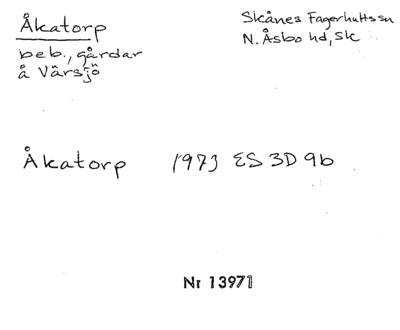 Åkatorp
beb., gårdar
å Värsjö
Skånes Fagerhultssn
N. Åsbo hd, Sk
Åkatorp 1973 ES 3D 9b
Nr 13971